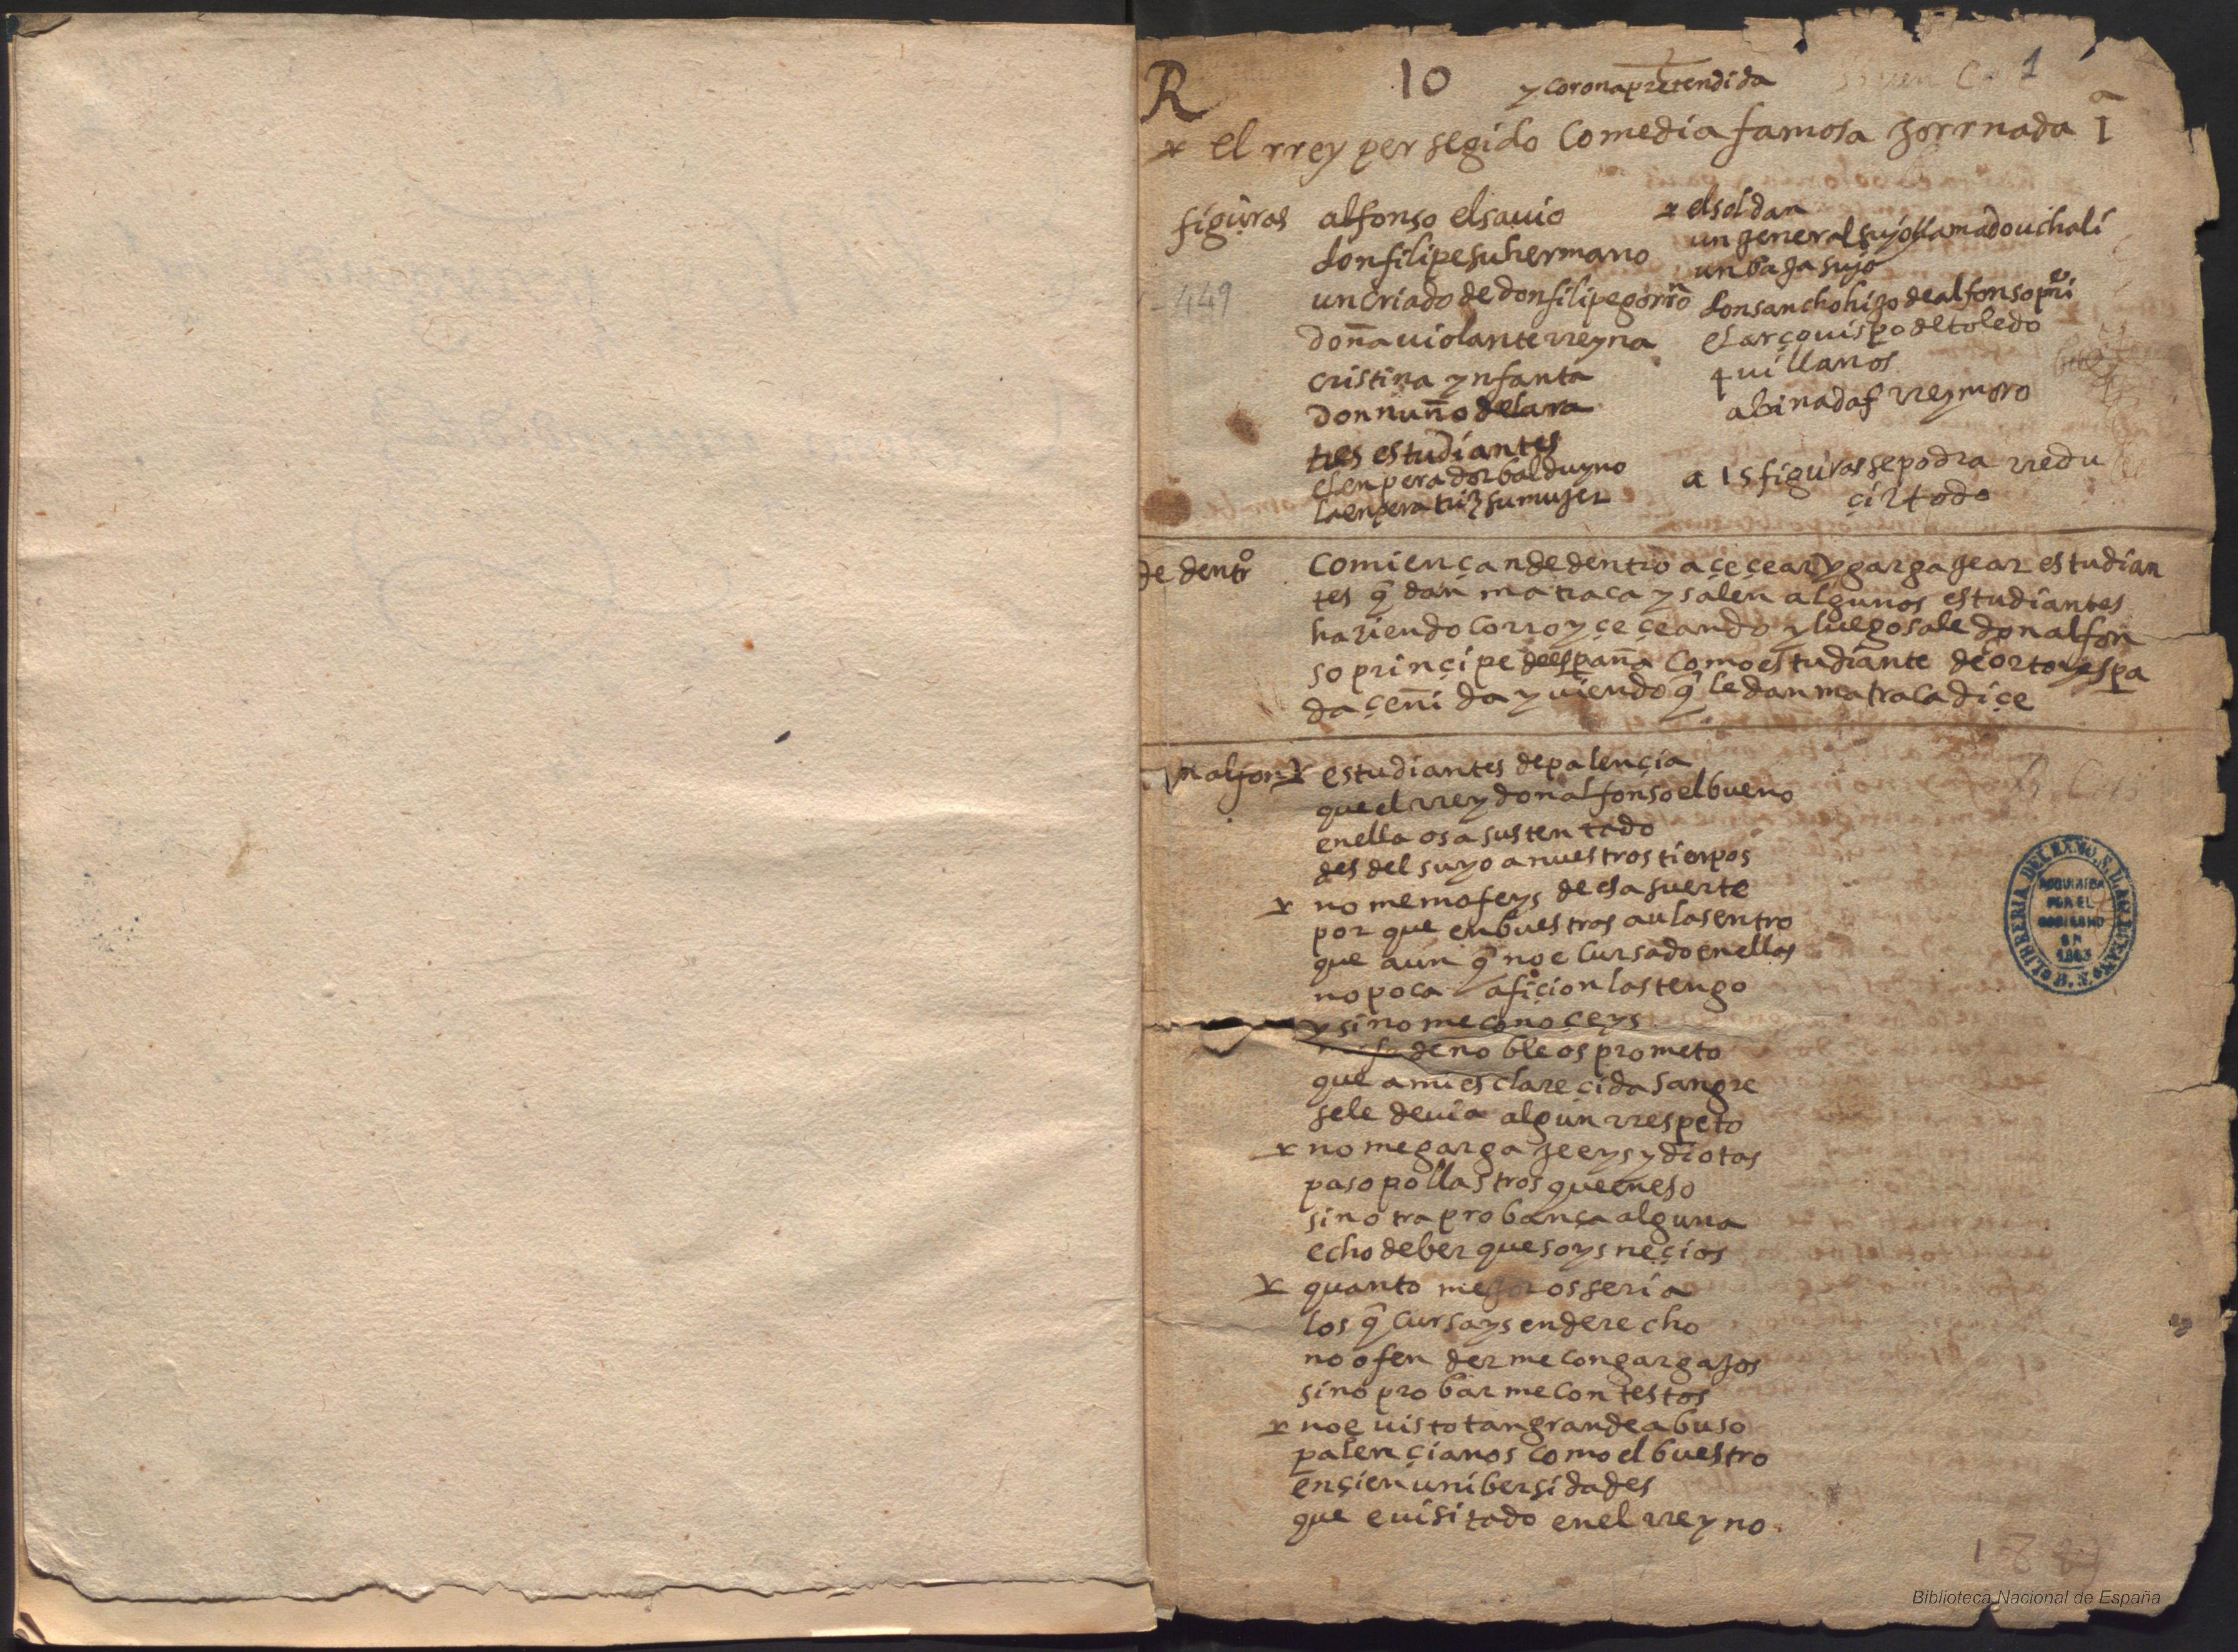 R
10
1
y corona pretendida
el rrey persegido comedia famosa jorrnada 1ª
figuras
alfonso el sauio
don filipe su hermano
un criado de don filipe gorrº
doña uiolante rreyna
cristina ynfanta
don nuño de lara
tres estudiantes
el enperador balduyno
la enperatriz su mujer
el soldan
un general suyo llamado uchali
un baja sujo
don sancho hijo de alfonso
el arçouispo de toledo
4 uillanos
abinadaf rrey moro
a 15 figuras se podra rredu
çir todo
449
de dentrº
comiençan de dentro a çeçear y gargagear estudian
tes q̃ dan matraca y salen algunos estudiantes
haziendo corro y çeçeando y luego sale don alfon
so prinçipe de españa como estudiante de corto y espa
da çeñida y uiendo q̃ le dan matraca diçe
n alfon
estudiantes de palençia
que el rrey don alfonso el bueno
en ella os a sustentado
desdel suyo a nuestros tienpos
no me mofeys de esa suerte
por que en buestras aulas entro
que aun q̃ no e cursado en ellas
no poca afiçion las tengo
y si no me conoçeys
de noble os prometo
que a mi esclareçida sangre
se le deuia algun rrespeto
no me gargajeeys ydiotas
paso pollastros que en eso
sin otra probança alguna
echo de ber que soys neçios
quanto mejor os seria
los q̃ cursays en derecho
no ofenderme con gargajos
sino probarme con testos
no e uisto tan grande abuso
palençianos como el buestro
en çien unibersidades
que e uisitado en el rreyno
LIBRERIA DEL EXMO. S. D. AG. DURAN
ADQUIRIDA
POR EL
GOBIERNO
EN
1863
B.N.
Biblioteca Nacional de España